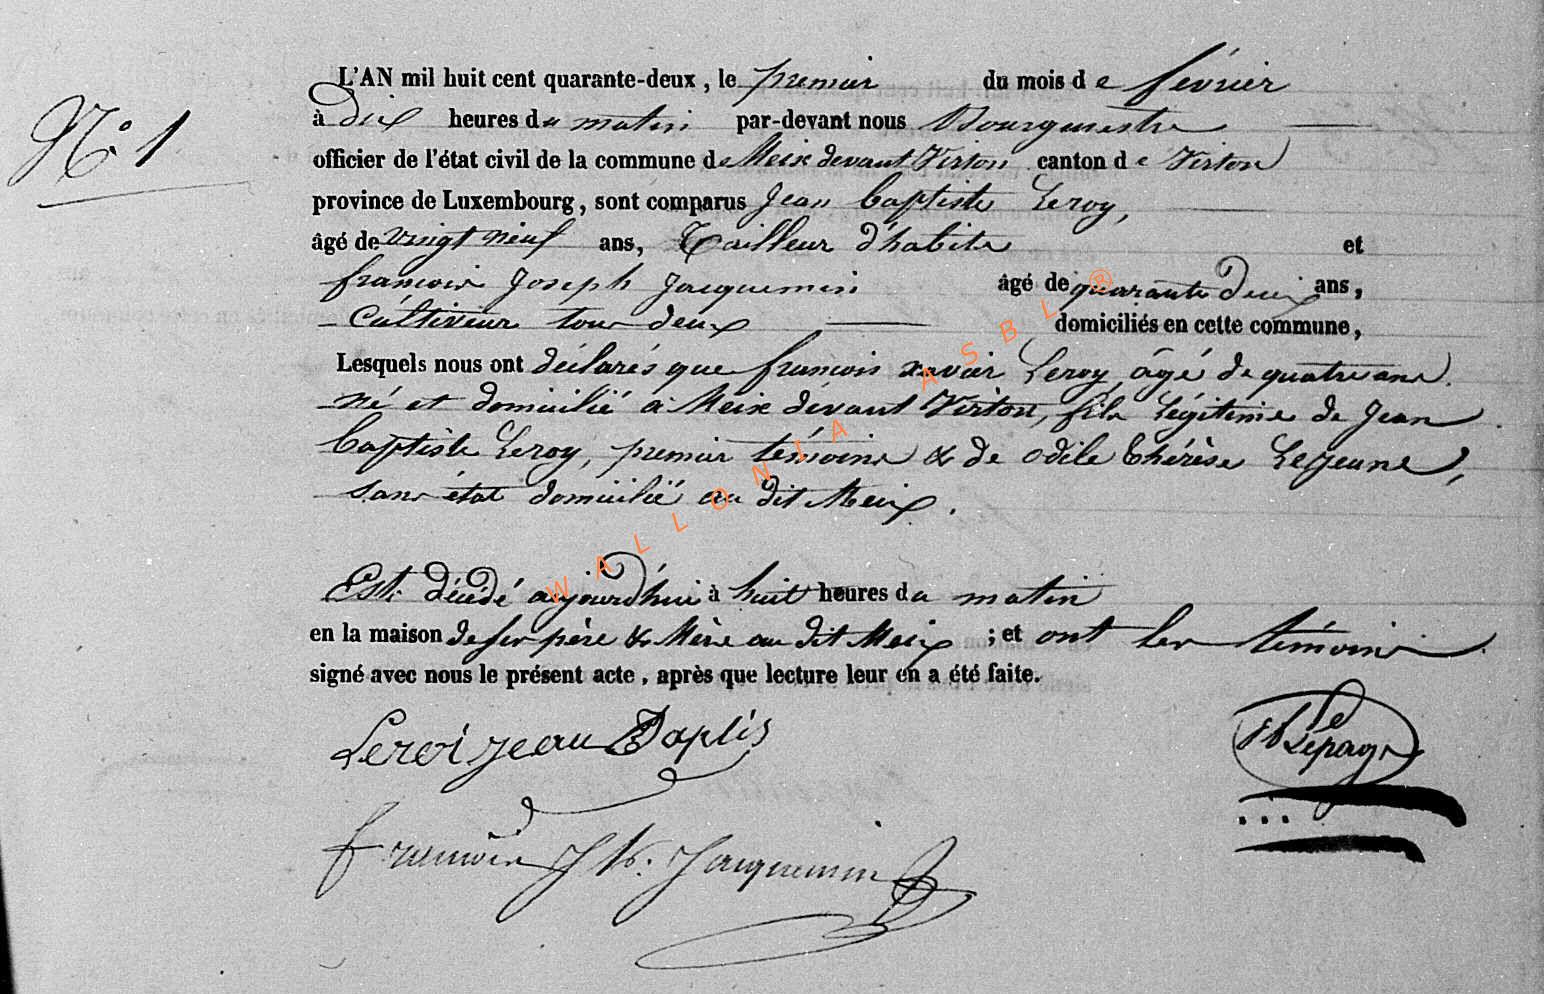 N.° 1
L'AN mil huit cent quarante-deux, le premier du mois de février
à dix heures du matin par-devant nous Bourguestre
officier de l'état civil de la commune de Meix devant Virton canton de Virton
province de Luxembourg, sont comparus Jean baptiste Leroy,
âgé de vingt neuf ans, Tailleur d'habits et
francois Joseph Jacquemin âgé de quarante deux ans,
Cultiveur tous deux domiciliés en cette commune,
Lesquels nous ont déclarés que francois xavier Leroy âgé de quatre ans.
né et domicilié à Meix dévant Virton, fils légitime de Jean
baptiste Leroy, premier témoins & de odile thérèse Lejeune,
sans état domicilié au dit Meix.
Est décédé aujourd'hui à huit heures du matin
en la maison de ses père & Mère au dit Meix ; et ont les témoins
signé avec nous le présent acte, après que lecture leur en a été faite.
Leroi jean Baptis
Le page
francois Jh. Jacquemin
WALLONIA ASBL ®